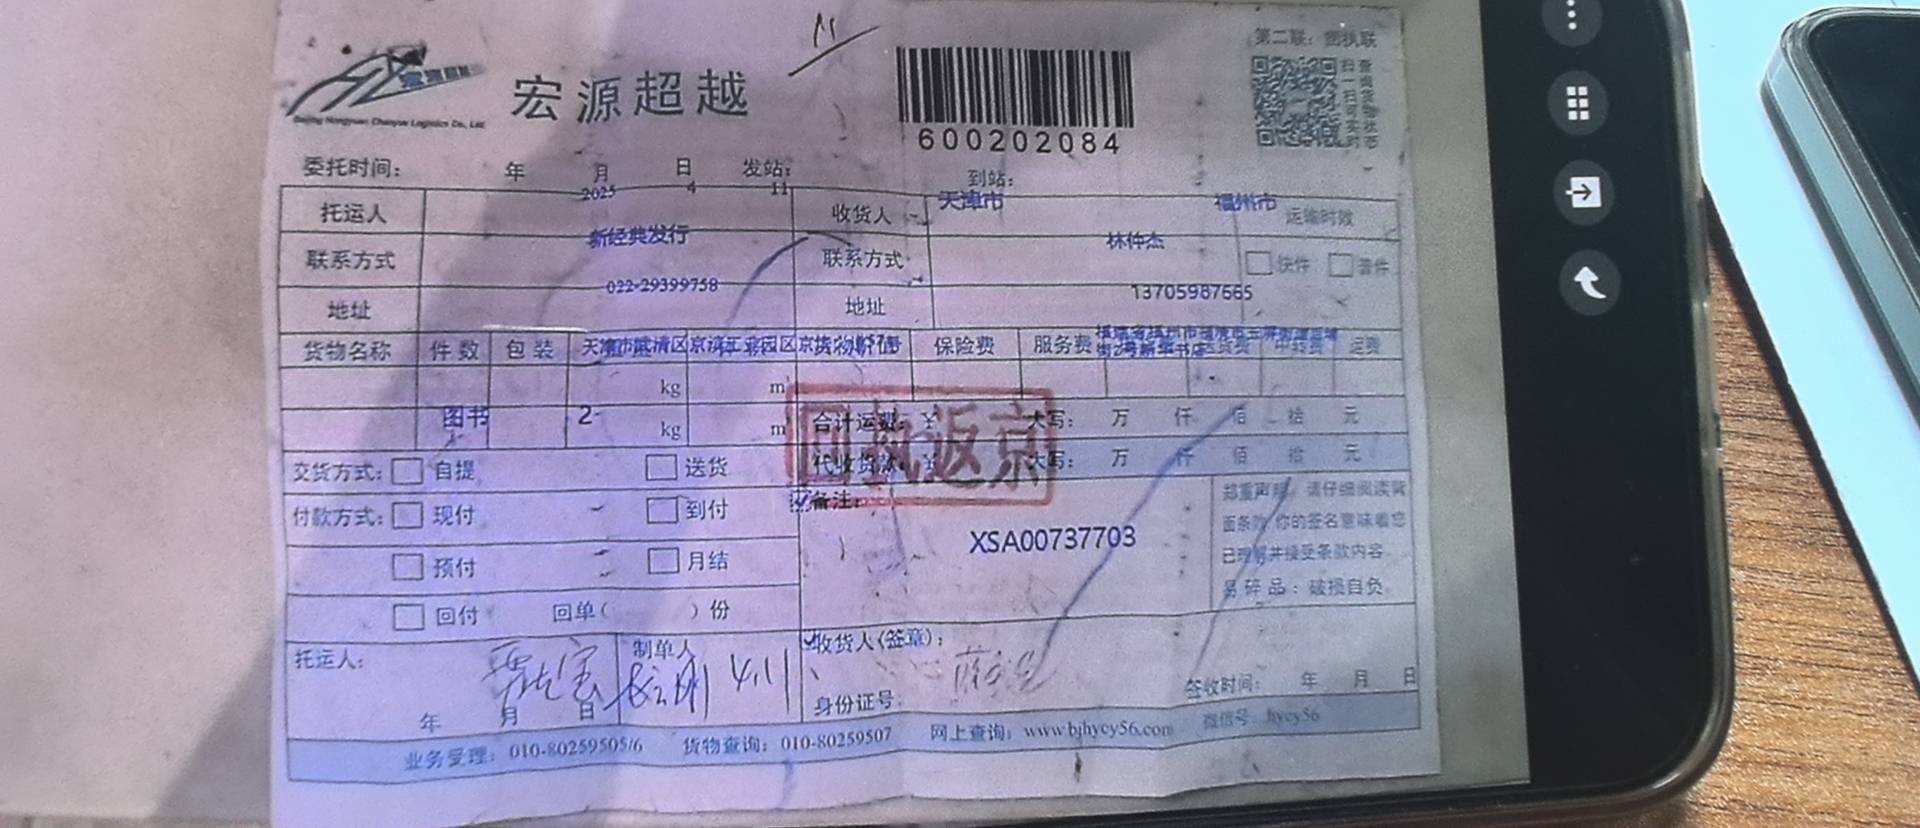 第二联：回执联
扫一扫可实时
查询货物状态
宏源超越
Beijing Hongyuan Chaoyue Logistics Co., Ltd.
600202084
委托时间： 年 月 日 发站： 到站：
2025 4 11 天津市 福州市
托运人 收货人 运输时效
新经典发行 林仲杰
联系方式 联系方式 快件 普件
022-29399758 13705987665
地址 地址
天津市武清区京滨工业园区京
货物名称 件数 包装 保险费 服务费 中转费 运费
kg m³
图书 2
kg m³
合计运费：¥ 大写： 万 仟 佰 拾 元
代收货款：¥ 大写： 万 仟 佰 拾 元
回执返京
交货方式： 自提 送货
付款方式： 现付 到付
预付 月结
回付 回单（ ）份
备注：
XSA00737703
郑重声明：请仔细阅读背
面条款，你的签名意味着您
已理解并接受条款内容。
易碎品：破损自负。
托运人： 制单人 收货人(签章)：
4.11
年 月 日 身份证号： 签收时间： 年 月 日
业务受理：010-80259505/6 货物查询：010-80259507 网上查询：www.bjhycy56.com 微信号：hycy56